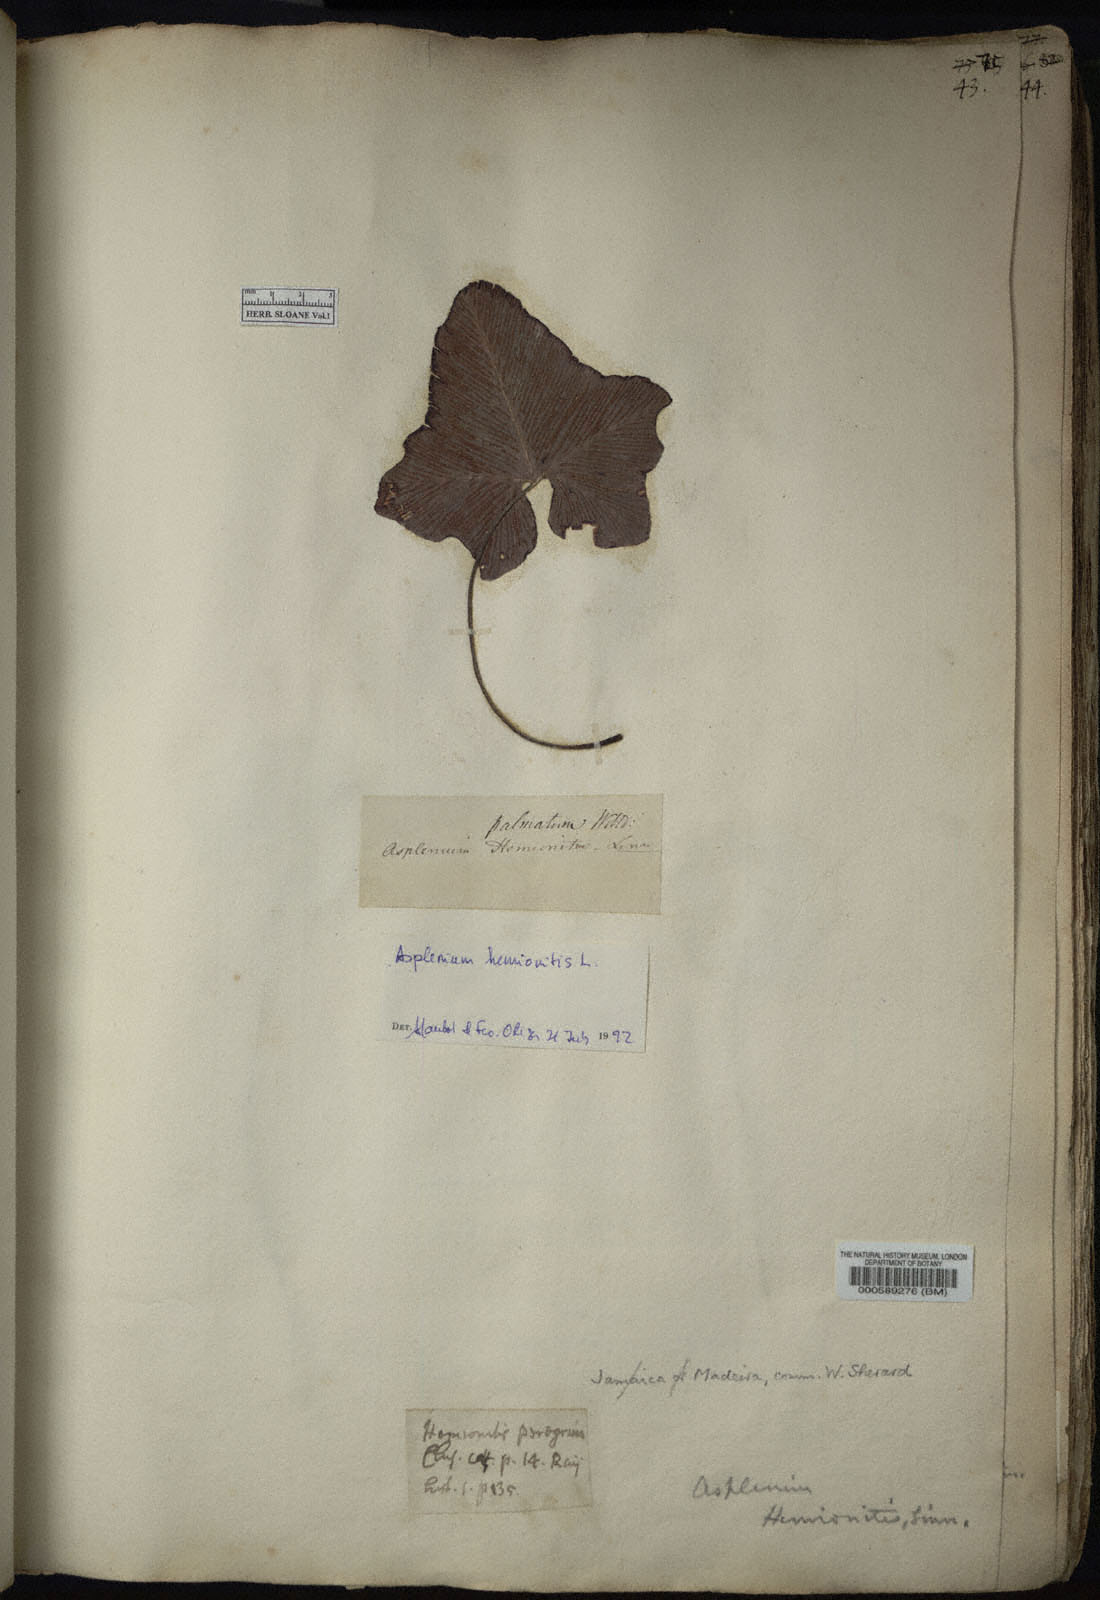 77
43.
44.
mm 1 2 3
HERB. SLOANE Vol.1
palmatum Willd:
Asplenium Hemionitis. Linn
Asplenium hemionitis L.
DET. 1992
THE NATURAL HISTORY MUSEUM, LONDON
DEPARTMENT OF BOTANY
000589276 (BM)
Jamaica Madeira, comm. W. Sherard
Hemionitis peregrina
Clus. p. 14. Raij
hist. 1. p 135.
Asplenium
Hemionitis, Linn.